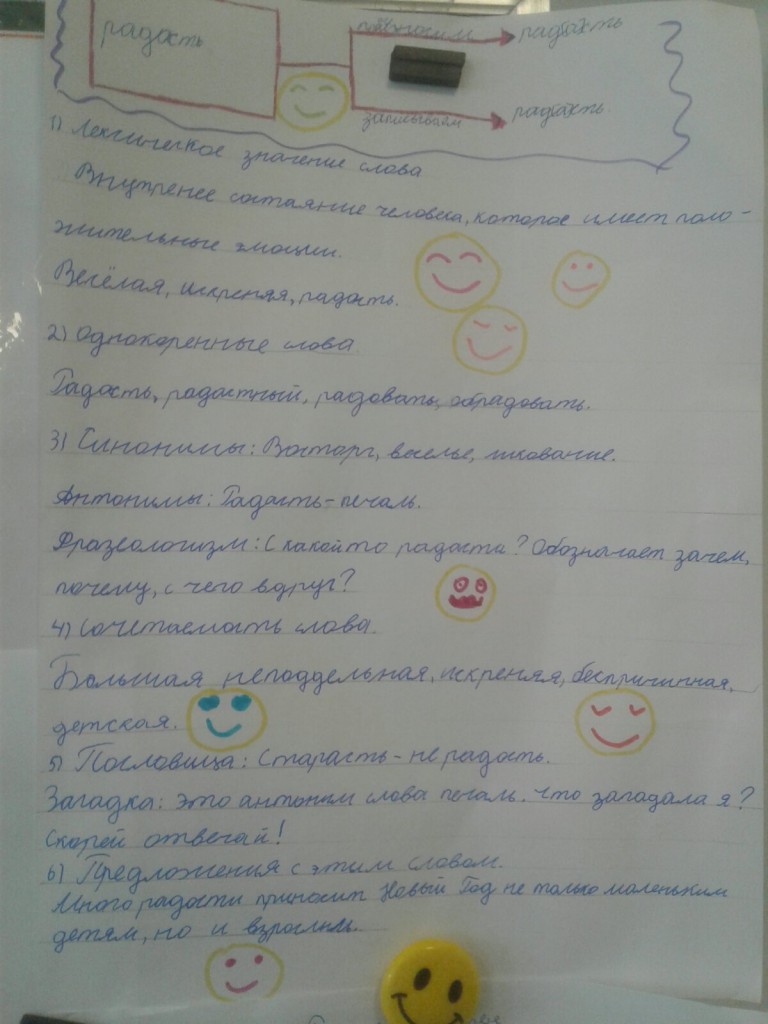 радость
произносим
записываем
1) Лексическое значение слова
Внутренее состаяние человека, которое имеет поло-
жительные эмоции.
Весёлая, искреняя, радость.
2) Однокоренные слова
Радость, радостный, радовать, обрадовать.
3) Синонимы: Восторг, веселье, ликование.
Антонимы: Радость-печаль.
Фразеологизм: С какойто радости? Обозначает зачем,
почему, с чего вдруг?
4) Сочетаемость слова.
Большая неподдельная, искреняя, беспричинная,
детская.
5) Пословица: Старасть - не радость.
Загадка: это антоним слова печаль. Что загадала я?
Скорей отвечай!
6) Предложения с этим словом.
Много радости приносит Новый Год не только маленьким
детям, но и взрослым.